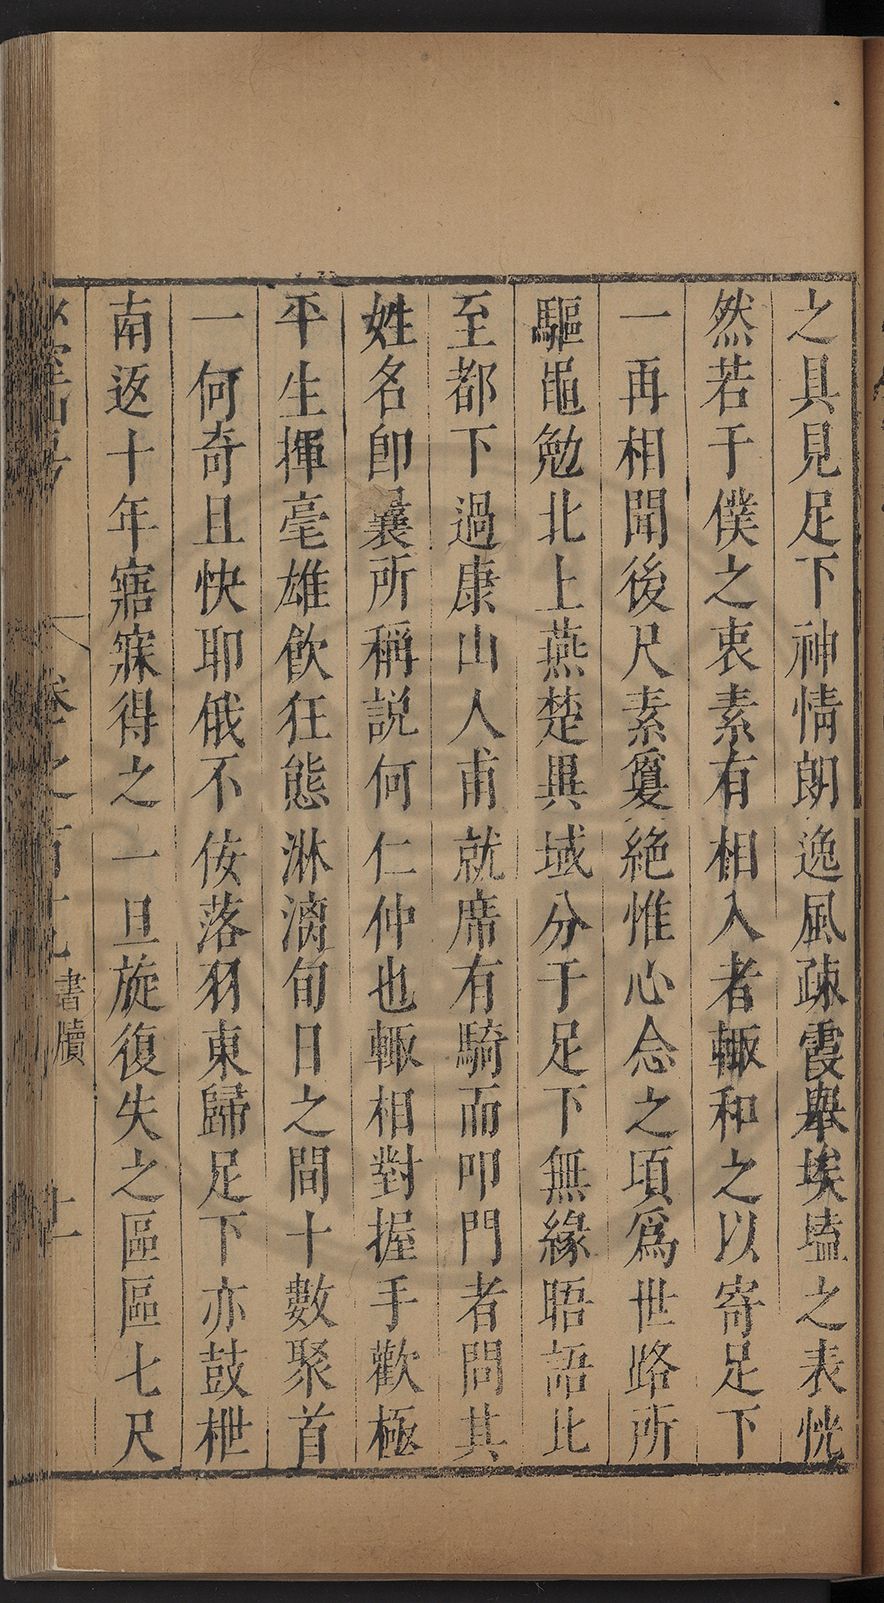 之具見足下神情朗逸風疎霞舉埃壒之表恍
然若于僕之衷素有相入者輒和之以寄足下
一再相聞後尺素敻絶惟心念之頃爲世路所
驅黽勉北上燕楚異域分于足下無緣晤語比
至都下過康山人甫就席有騎而叩門者問其
姓名卽曩所稱説何仁仲也輒相對握手歡極
平生揮毫雄飲狂態淋漓旬日之間十數聚首
一何奇且快耶俄不佞落羽東歸足下亦鼓枻
南返十年寤寐得之一旦旋復失之區區七尺
卷之百
書牘